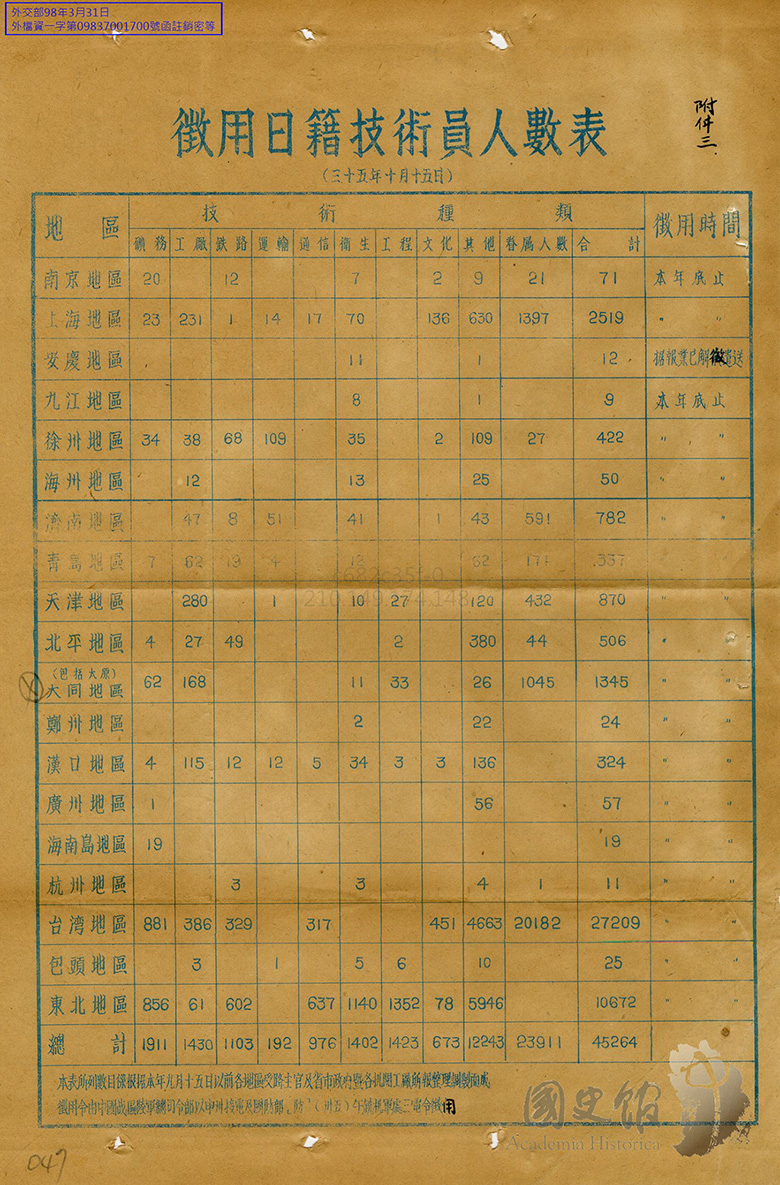 外交部98年3月31日
外檔資一字第09837001700號函註銷密等
附件三
徵用日籍技術員人數表
(三十五年十月十五日)
地區 技術種類 徵用時間
礦務 工廠 鉄路 運輸 通信 衛生 工程 文化 其他 眷属人數 合計
南京地區 20 12 7 2 9 21 71 本年底止
上海地區 23 231 1 14 17 70 136 630 1397 2519 〃 〃
安慶地區 11 1 12 据報業已解徵 送
九江地區 8 1 9 本年底止
徐州地區 34 38 68 109 35 2 109 27 422 〃 〃
海州地區 12 13 25 50 〃 〃
濟南地區 47 8 51 41 1 43 591 782 〃 〃
青島地區 7 62 19 4 12 62 171 337 〃 〃
天津地區 280 1 10 27 120 432 870 〃 〃
北平地區 4 27 49 2 380 44 506 〃 〃
(包括太原)
大同地區 62 168 11 33 26 1045 1345 〃 〃
鄭州地區 2 22 24 〃 〃
漢口地區 4 115 12 12 5 34 3 3 136 324 〃 〃
廣州地區 1 56 57 〃 〃
海南島地區 19 19 〃 〃
杭州地區 3 3 4 1 11 〃 〃
台湾地區 881 386 329 317 451 4663 20182 27209 〃 〃
包頭地區 3 1 5 6 10 25 〃 〃
東北地區 856 61 602 637 1140 1352 78 5946 10672 〃 〃
總計 1911 1430 1103 192 976 1402 1423 673 12243 23911 45264
本表所列數目係根据本年九月十五日以前各地區受降主官及省市政府暨各机関工廠所報整理調製而成
徵用令由中國战區陸軍總司令部以申 防 (卅五)午 机軍 三電令徵用
國史館
Academia Historica
047